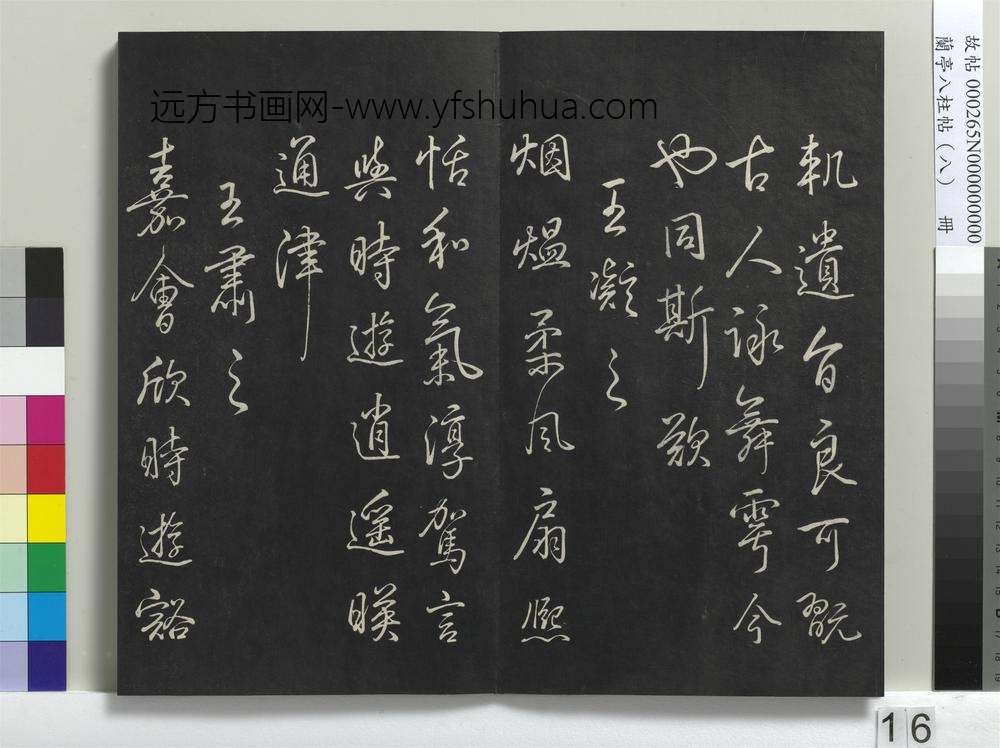 故帖 000265N000000000
蘭亭八柱帖（八） 冊
远方书画网-www.yfshuhua.com
軌遺音良可翫
古人詠舞雩今
也同斯歎
王凝之
烟熅柔風扇熈
恬和氣淳駕言
與時遊逍遥暎
通津
王肅之
嘉會欣時遊豁
16